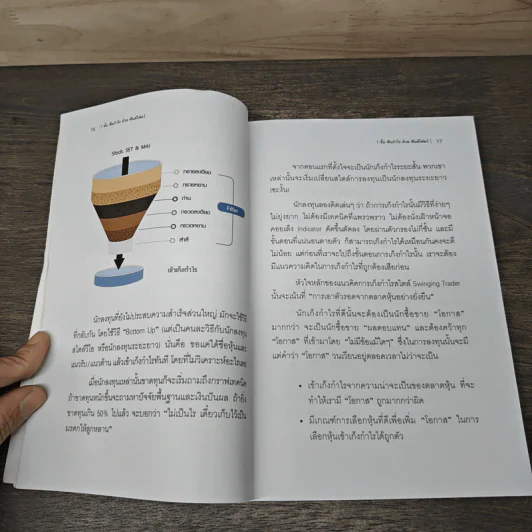 76 | 7 ขั้น หุ้นกำไร ด้วย หุ้นมือโปร
Stock: SET & MAI
ทรายละเอียด
ทรายหยาบ
ถ่าน
กรวดละเอียด
กรวดหยาบ
สำลี
Filter
เข้าเก็งกำไร
นักลงทุนที่ยังไม่ประสบความสำเร็จส่วนใหญ่ มักจะใช้วิธี
ที่กลับกัน โดยใช้วิธี "Bottom Up" (แต่เป็นคนละวิธีกับนักลงทุน
สไตล์วีไอ หรือนักลงทุนระยะยาว) นั่นคือ ขอแค่ได้ชื่อหุ้นและ
แนวรับ/แนวต้าน แล้วเข้าเก็งกำไรทันที โดยที่ไม่วิเคราะห์อะไรเลย
เมื่อนักลงทุนเหล่านั้นขาดทุนก็จะเริ่มถามถึงกราฟเทคนิค
ถ้าขาดทุนหนักขึ้นจะถามหาปัจจัยพื้นฐานและเงินปันผล ถ้ายัง
ขาดทุนเกิน 50% ไปแล้ว จะบอกว่า "ไม่เป็นไร เดี๋ยวเก็บไว้เป็น
มรดกให้ลูกหลาน"
77
จากตอนแรกที่ตั้งใจจะเป็นนักเก็งกำไรระยะสั้น พวกเขา
เหล่านั้นจะเริ่มเปลี่ยนสไตล์การลงทุนเป็นนักลงทุนระยะยาว
ซะงั้น
นักลงทุนลองคิดเล่นๆ ว่า ถ้าการเก็งกำไรนั้นมีวิธีที่ง่ายๆ
ไม่ยุ่งยาก ไม่ต้องมีเทคนิคที่แพรวพราว ไม่ต้องนั่งเฝ้าหน้าจอ
คอยเล็ง Indicator ตัดขึ้นตัดลง โดยผ่านตัวกรองไม่กี่ชั้น และมี
ขั้นตอนที่แน่นอนตายตัว ก็สามารถเก็งกำไรได้เหมือนกันคงจะดี
ไม่น้อย แต่ก่อนที่เราจะไปถึงขั้นตอนการเก็งกำไรนั้น เราจะต้อง
มีแนวความคิดในการเก็งกำไรที่ถูกต้องเสียก่อน
หัวใจหลักของแนวคิดการเก็งกำไรสไตล์ Swinging Trader
นั้นจะเน้นที่ "การเอาตัวรอดจากตลาดหุ้นอย่างยั่งยืน"
นักเก็งกำไรที่ดีนั้นจะต้องเป็นนักซื้อขาย "โอกาส"
มากกว่า จะเป็นนักซื้อขาย "ผลตอบแทน" และต้องคว้าทุก
"โอกาส" ที่เข้ามาโดย "ไม่มีข้อแม้ใดๆ" ซึ่งในการลงทุนนั้นจะมี
แต่คำว่า "โอกาส" วนเวียนอยู่ตลอดเวลาไม่ว่าจะเป็น
• เข้าเก็งกำไรจากความน่าจะเป็นของตลาดหุ้น ที่จะ
ทำให้เรามี "โอกาส" ถูกมากกว่าผิด
• มีเกณฑ์การเลือกหุ้นที่ดีเพื่อเพิ่ม "โอกาส" ในการ
เลือกหุ้นเข้าเก็งกำไรได้ถูกตัว